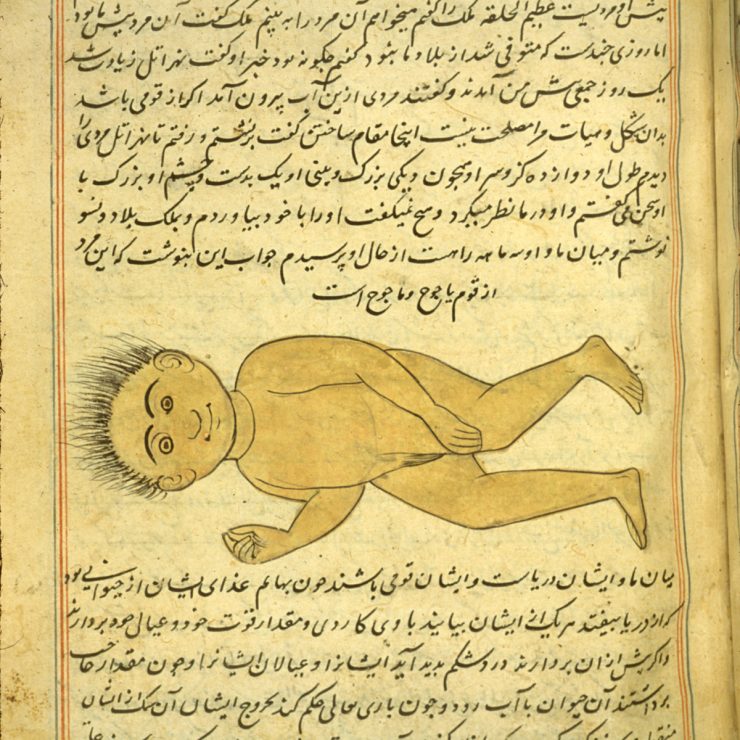 پیش او مردیست عظیم الخلقه ملک را گفتم میخواهم آن مرد را به بینم ملک گفت آن مرد پیش ما بود
اما روزی چندست که متوفی شد از بلاد ما نبود گفتم چگونه بود خبر او گفت نهر اتل زیادت شد
یک روز جمعی پیش من آمدند و گفتند مردی ازین آب بیرون آمد اگر از قومی باشد
بدان شکل و هیات مرا مصلحت نیست اینجا مقام ساختن گفت برنشستم و رفتم تا نهر اتل مردی را
دیدم طول او دوازده گز و سر او همچون دیکی بزرک و بینی او یک بدست و چشم او بزرک با
او سخن می گفتم و او در ما نظر میکرد و هیچ نمیگفت او را با خود بیاوردم و بملک بلاد ونسو
نوشتم و میان ما و او سه ماهه راهست از حال او پرسیدم جواب این بنوشت که این مرد
از قوم یاجوج و ماجوج است
میان ما و ایشان دریاست و ایشان قومی باشند چون بهائم غذای ایشان از حیوانی بود
که از دریا بیفتد هر یک از ایشان بیایند با وی کاردی و مقدار قوت خود و عیال خود بردارند
و اگر بیش از ان بردارند درد شکم بدید آید ایشانرا و عیالان ایشانرا و چون مقدار حاجت
برداشتند آن حیوان با آب رود و چون باری تعالی حکم کند بخروج ایشان آن